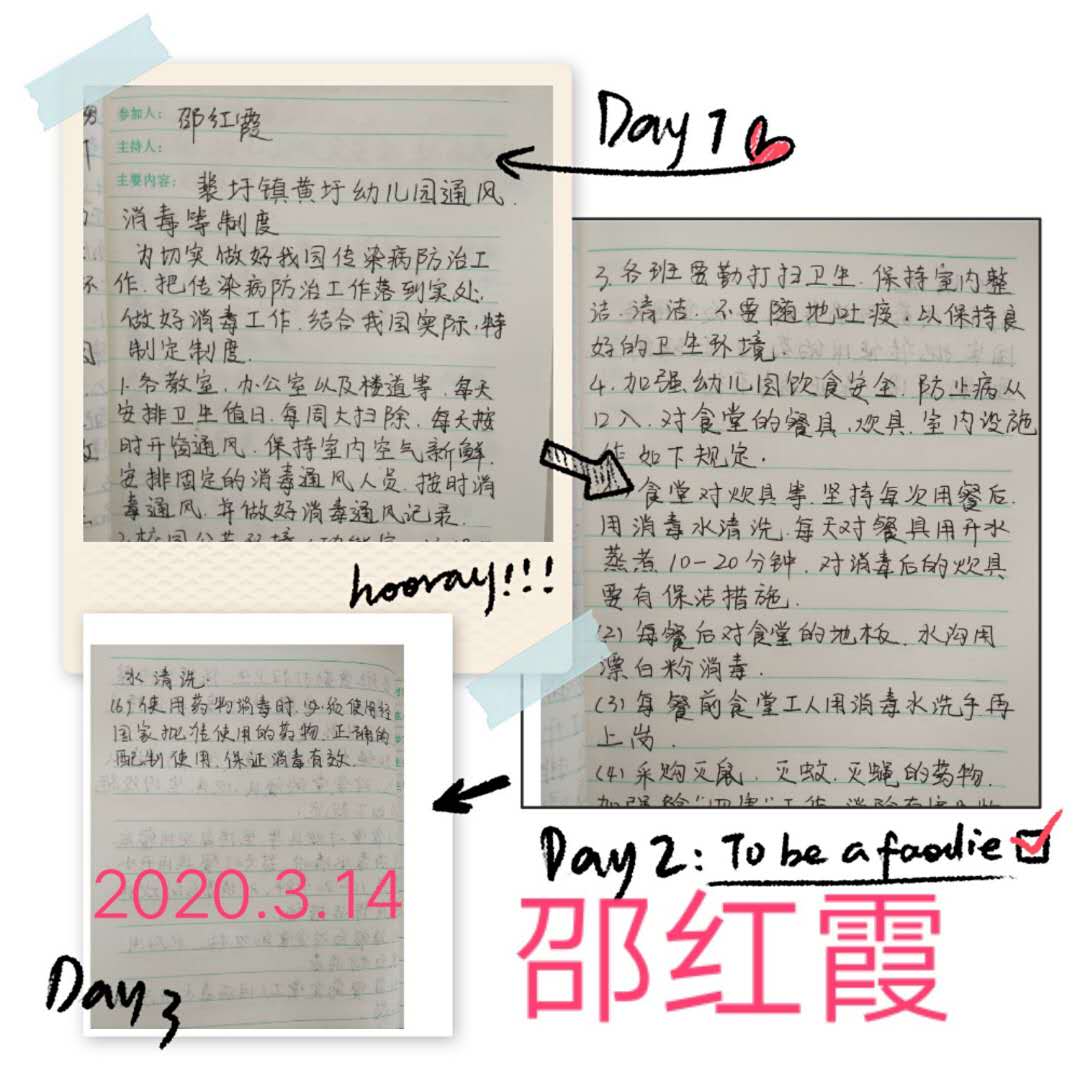 Day 1
参加人: 邵红霞
主持人:
主要内容: 裴圩镇黄圩幼儿园通风.
消毒等制度
为切实做好我园传染病防治工
作.把传染病防治工作落到实处.
做好消毒工作.结合我园实际.特
制定制度.
1.各教室.办公室以及楼道等.每天
安排卫生值日.每周大扫除.每天按
时开窗通风.保持室内空气新鲜.
安排固定的消毒通风人员.按时消
毒通风.并做好消毒通风记录.
hooray!!!
3.各班要勤打扫卫生.保持室内整
洁.清洁.不要随地吐痰.以保持良
好的卫生环境.
4.加强幼儿园饮食安全.防止病从
口入.对食堂的餐具.炊具.室内设施
作如下规定.
食堂对炊具等.坚持每次用餐后.
用消毒水清洗.每天对餐具用开水
蒸煮10-20分钟.对消毒后的炊具
要有保洁措施.
(2)每餐后对食堂的地板.水沟用
漂白粉消毒.
(3)每餐前食堂工人用消毒水洗手再
上岗.
(4)采购灭鼠.灭蚊.灭蝇的药物.
Day 2: To be a foodie
水清洗.
(6)使用药物消毒时.必须使用经
国家批准使用的药物.正确的
配制使用.保证消毒有效.
2020.3.14
Day 3
邵红霞